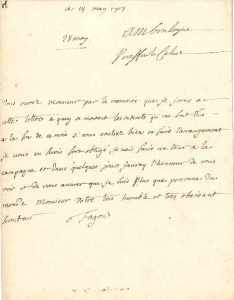 ce 14 may 1717
28 may.
a M boulogne
Vous verrez Monsieur par le memoire que je joins a
cette lettre a quoy se montent les interets qui me sont dus
a la fin de ce mois si vous voulez bien en faire l'arrangement
je vous en serois fort obligé, je vais faire un tour a la
campagne et dans quelques jours j'auray l'honneur de vous
voir et de vous assurer que je suis plus que personne du
monde Monsieur Votre tres humble et tres obeissant
serviteur
fagon